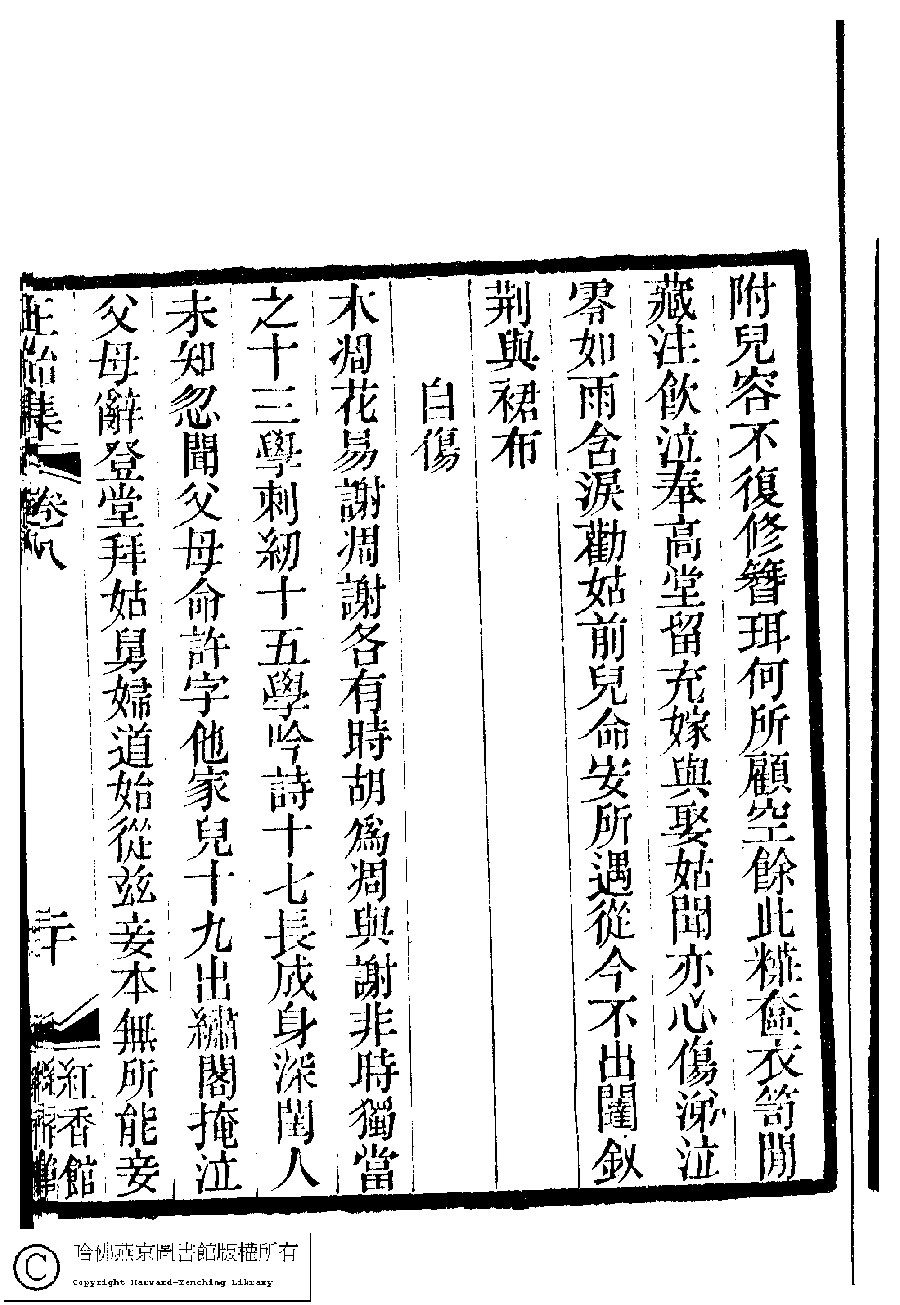 附兒容不復修簪珥何所顧空餘此糚奩衣笥閒
藏注飲泣奉高堂留充嫁與娶姑聞亦心傷涕泣
零如雨含淚勸姑前兒命安所遇從今不出閨釵
荆與裙布
自傷
木凋花易謝凋謝各有時胡爲凋與謝非時獨當
之十三學刺紉十五學吟詩十七長成身深閨人
未知忽聞父母命許字他家兒十九出繡閣掩泣
父母辭登堂拜姑舅婦道始從兹妾本無所能妾
正始集 卷八 二十 紅香館
哈佛燕京圖書館版權所有
Copyright Harvard-Yenching Library